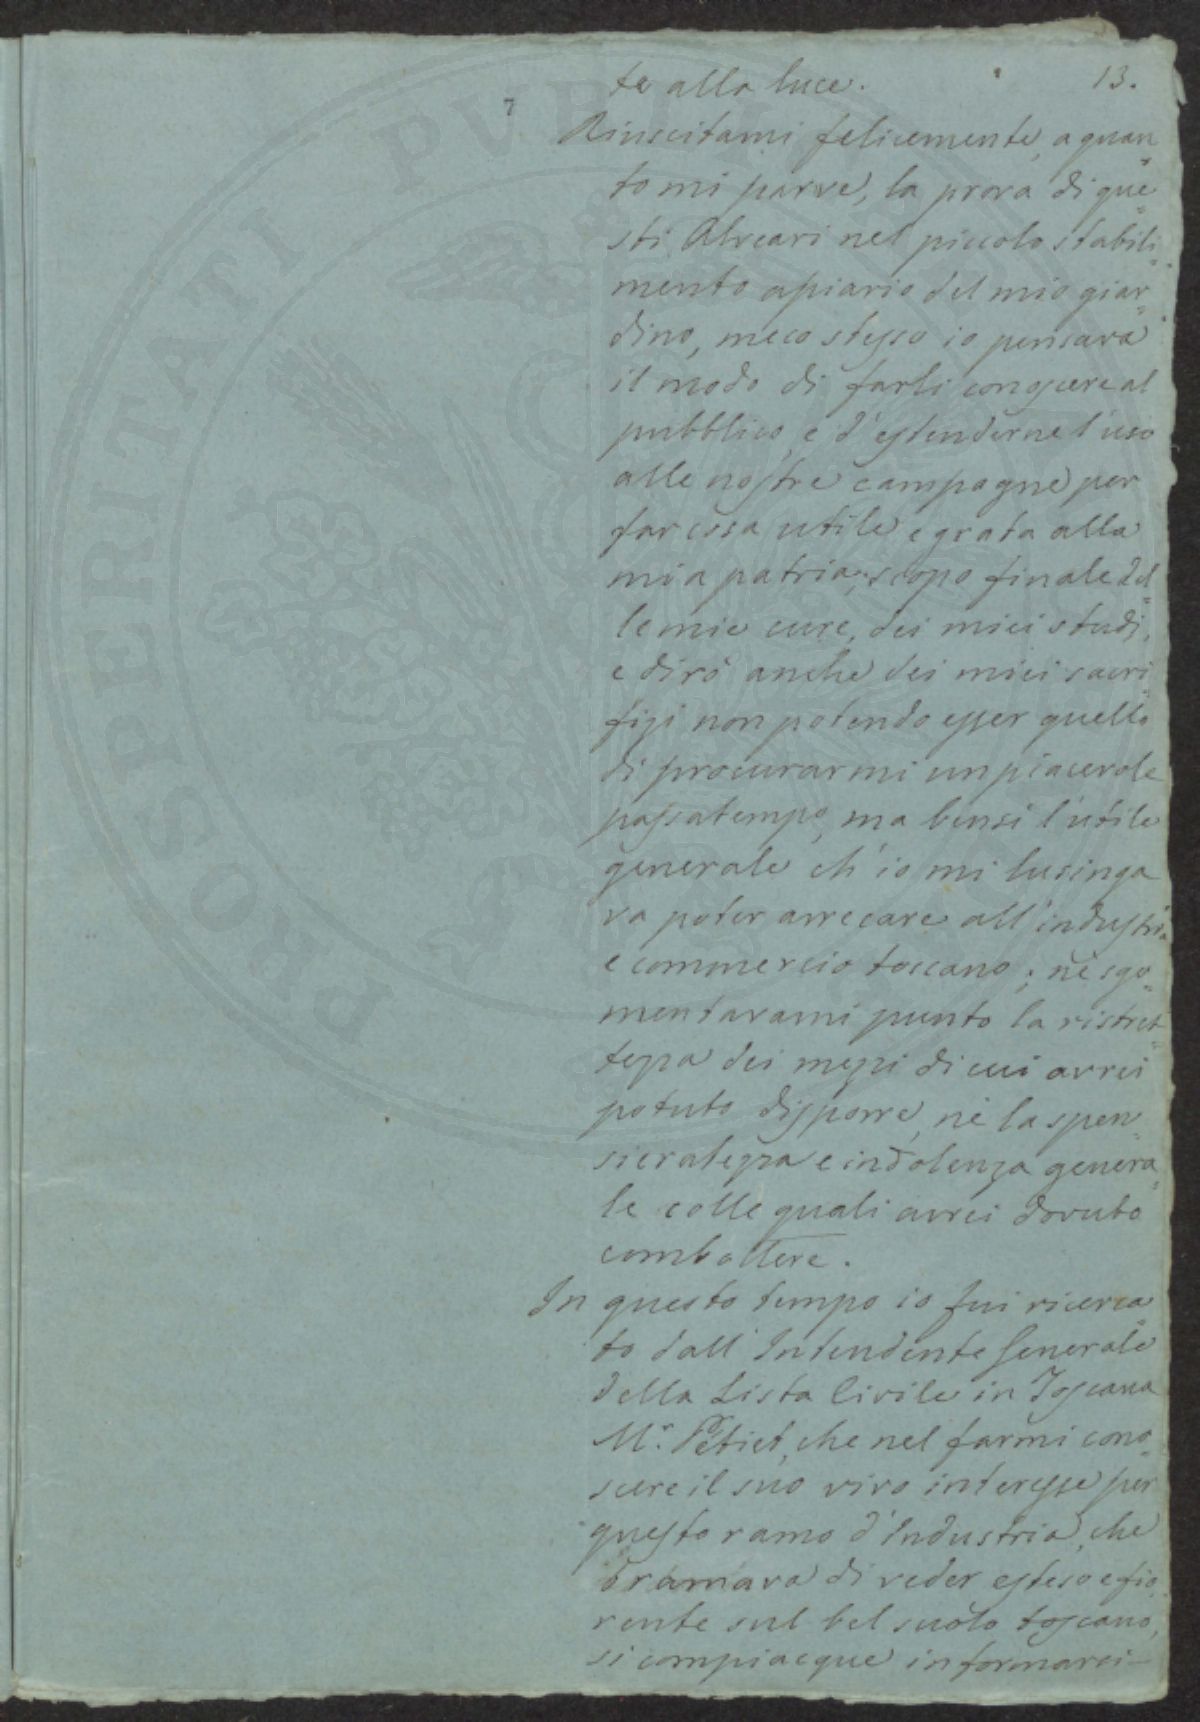 13.
7
te alla luce.
Riuscitami felicemente, a quan=
to mi parve, la prova di que=
sti Alveari nel piccolo stabili=
mento apiario del mio giar=
dino, meco stesso io pensava
il modo di farli conoscere al
pubblico, e d'estenderne l'uso
alle nostre campagne per
far cosa utile e grata alla
mia patria; scopo finale del=
le mie cure, dei miei studi,
e dirò anche dei miei sacri=
fizi non potendo esser quello
di procurarmi un piacevole
passatempo, ma bensì l'utile
generale ch'io mi lusinga
va poter arrecare all'industria
e commercio toscano; nè sgo=
mentavami punto la ristret=
tezza dei mezzi di cui avrei
potuto disporre, nè la spen=
sieratezza e indolenza genera=
le colle quali avrei dovuto
combattere.
In questo tempo io fui ricerca=
to dall'Intendente Generale
della Lista Civile in Toscana
Mr. Petiet, che nel farmi cono=
scere il suo vivo interesse per
questo ramo d'Industria, che
bramava di veder esteso e fio=
rente sul bel suolo toscano,
si compiacque informarci-
PROSPERITATI PVBLICAE